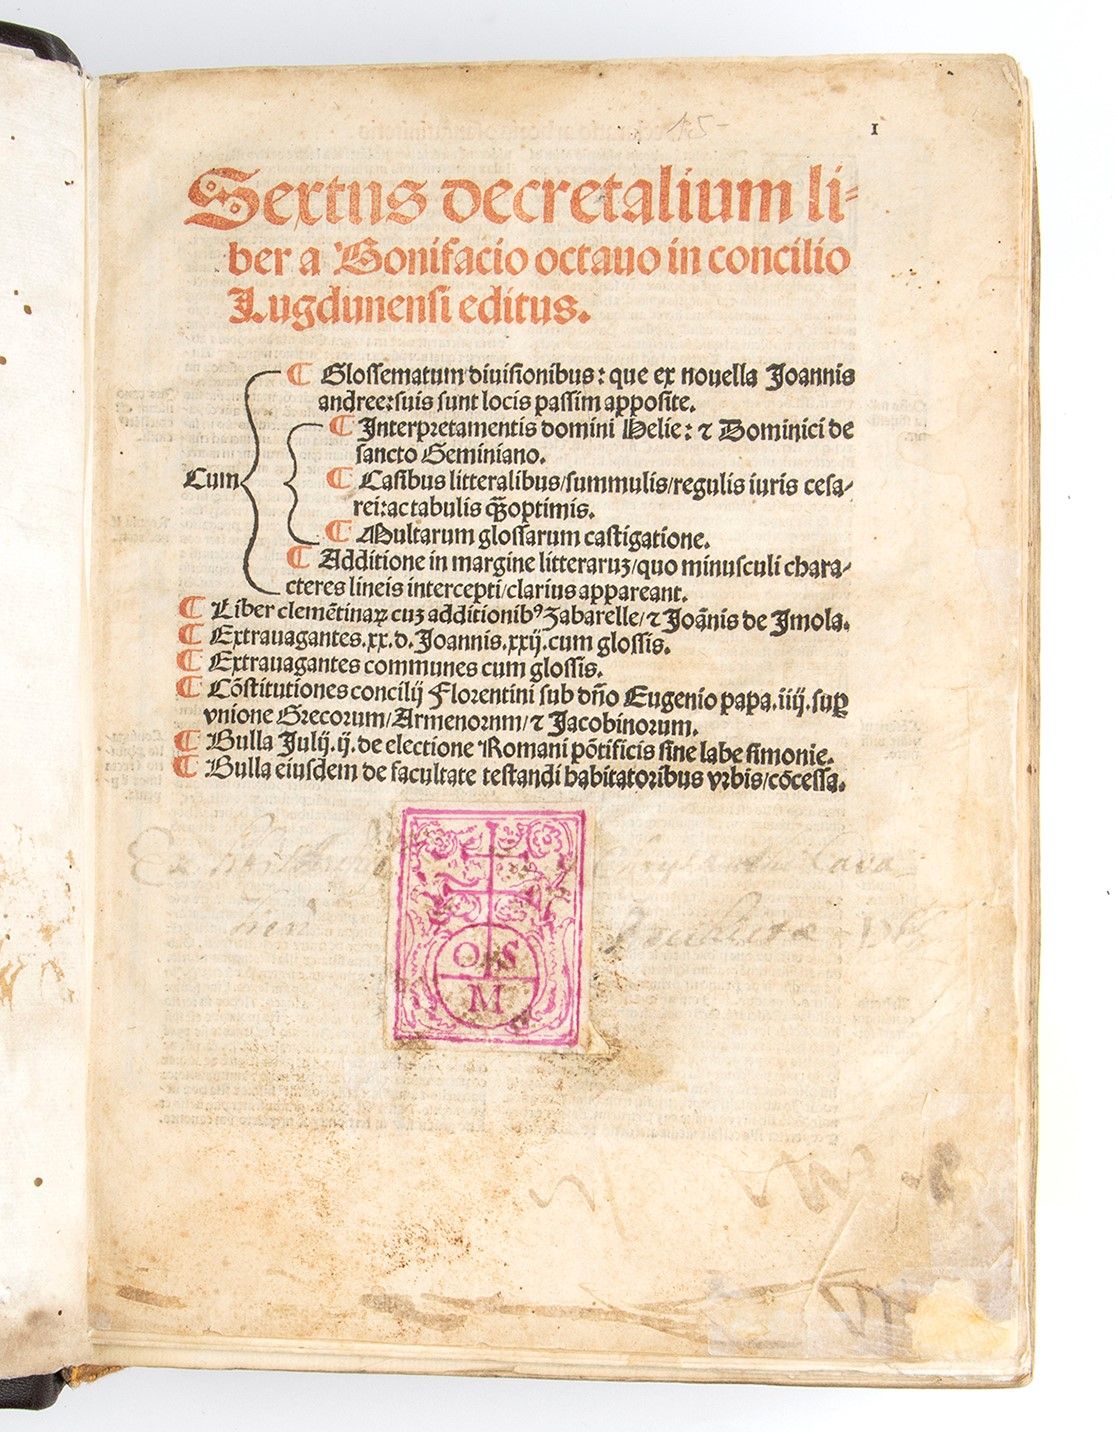 15-
1
Sextus decretalium li-
ber a Bonifacio octauo in concilio
Lugdunensi editus.
¶ Glossematum diuisionibus: que ex nouella Joannis
andree: suis sunt locis passim apposite.
¶ Interpretamentis domini Helie: ⁊ Dominici de
sancto Geminiano.
Cum ¶ Casibus litteralibus/summulis/regulis iuris cesa-
rei: ac tabulis q̄optimis.
¶ Multarum glossarum castigatione.
¶ Additione in margine litteraruꝫ/quo minusculi chara-
cteres lineis intercepti/clarius appareant.
¶ Liber clemētinaꝝ cuꝫ additionibꝰ Zabarelle/⁊ Joānis de Jmola.
¶ Extrauagantes.xx.d.Joannis.xxij.cum glossis.
¶ Extrauagantes communes cum glossis.
¶ Cōstitutiones concilij Florentini sub dño Eugenio papa.iiij.suꝑ
vnione Grecorum/Armenornm/⁊ Jacobinorum.
¶ Bulla Julij.ij.de electione Romani pōtificis sine labe simonie.
¶ Bulla eiusdem de facultate testandi habitatoribus vrbis/cōcessa.
Ex
O S
M